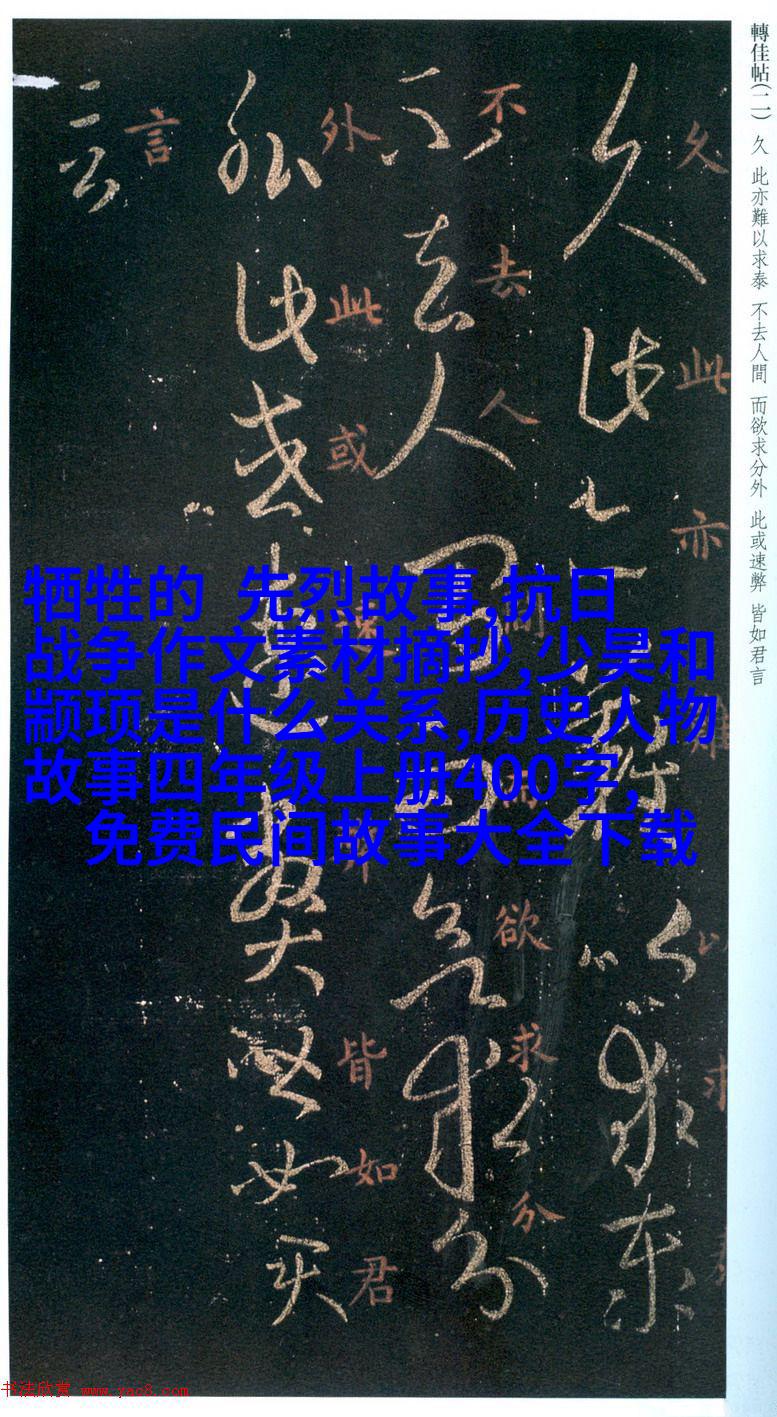 轉佳帖(二) 久 此亦難以求泰 不去人間 而欲求分外 此或速弊 皆如君言
久此亦難以求
不去人間而欲求分
外此或速弊皆如君
言
牺牲的 先烈故事,抗日
战争作文素材摘抄,少昊和
颛顼是什么关系,历史人物
故事四年级上册400字,
免费民间故事大全下载
书法欣赏 www.yac8.com